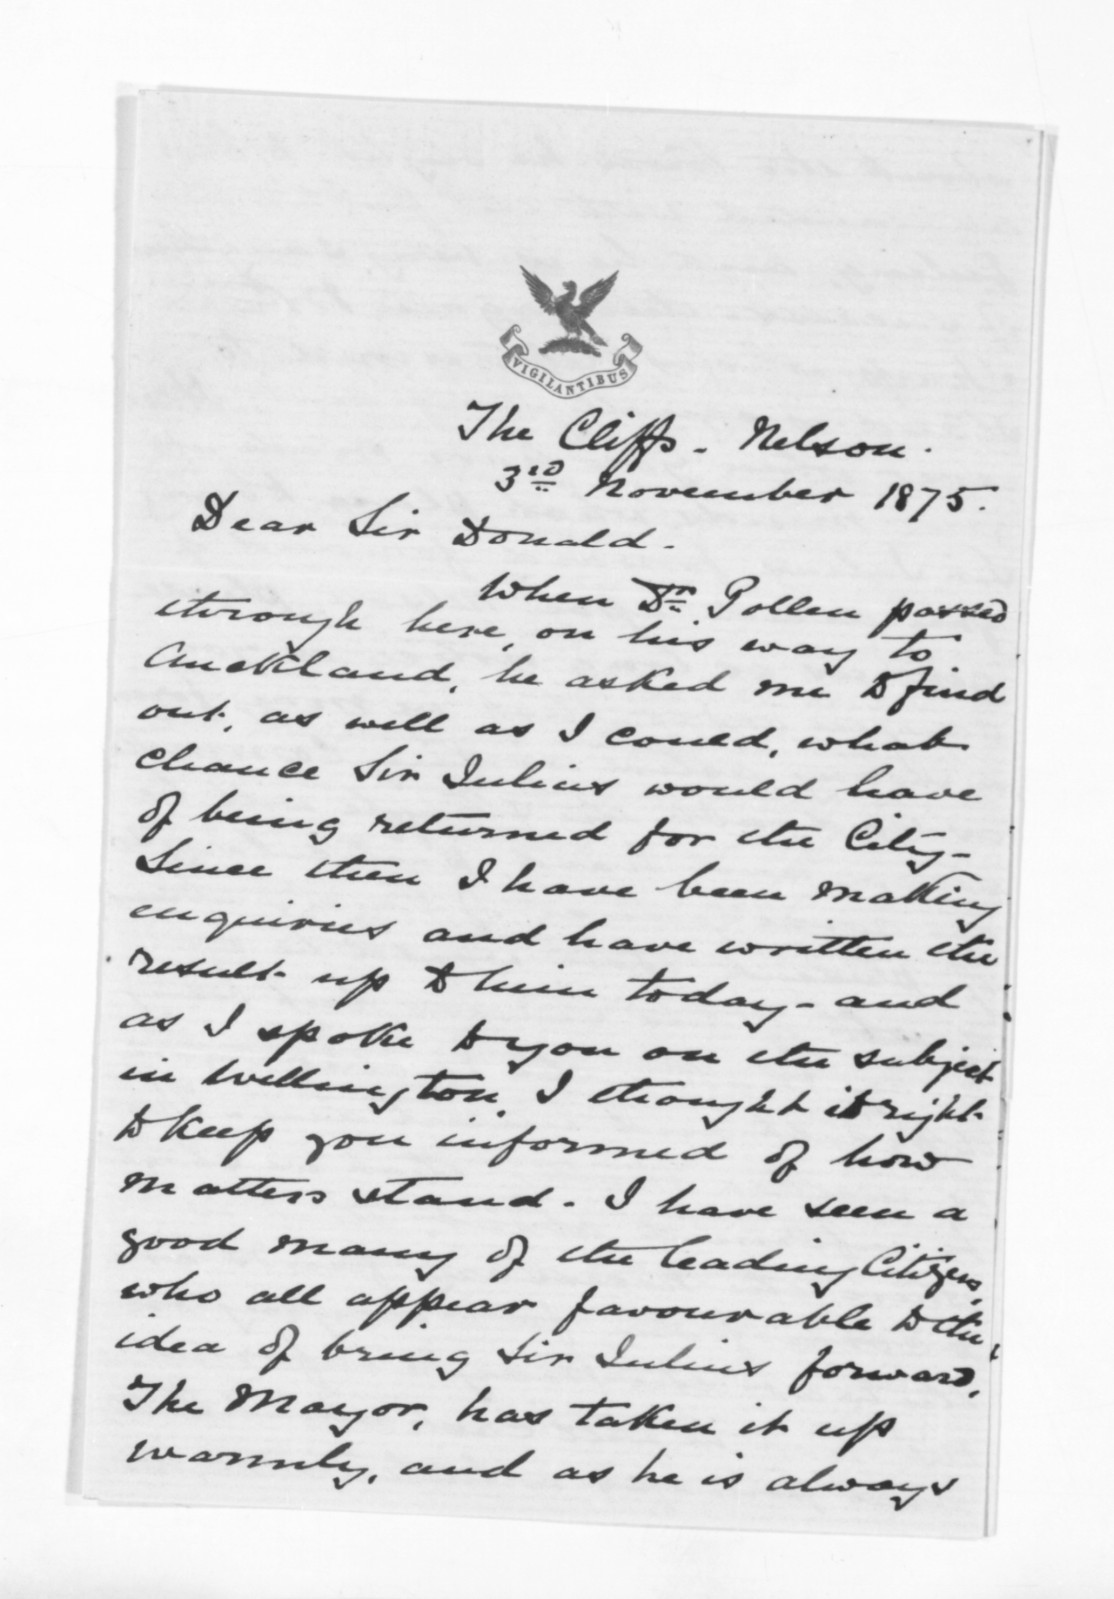 VIGILANTIBUS
The Cliffs - Nelson.
3rd November 1875.
Dear Sir Donald.
When Dr Pollen passed
through here, on his way to
Auckland, he asked me to find
out, as well as I could, what
chance Sir Julius would have
of being returned for the City -
Since then I have been making
enquiries and have written the
result up to him today - and
as I spoke to you on the subject
in Wellington, I thought it right
to keep you informed of how
matters stand. I have seen a
good many of the leading Citizens,
who all appear favourable to the
idea of bring Sir Julius forward,
The Mayor, has taken it up
warmly, and as he is always